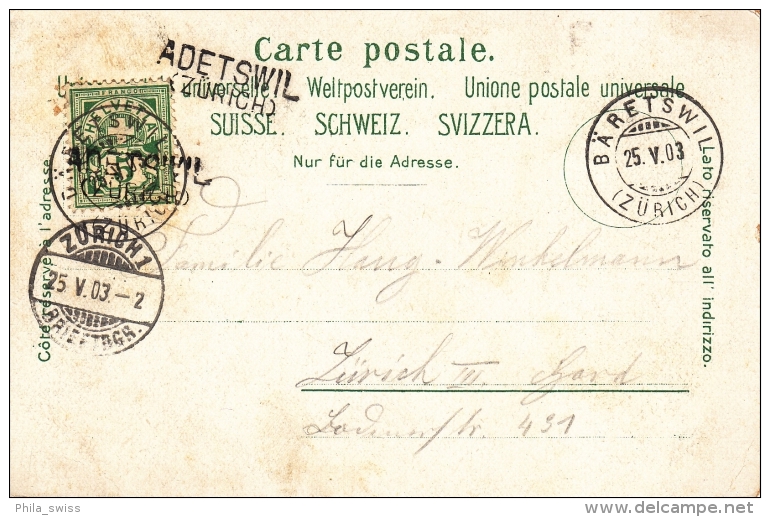 Carte postale.
universelle. Weltpostverein. Unione postale universale
SUISSE. SCHWEIZ. SVIZZERA.
Nur für die Adresse.
ADETSWIL
(ZÜRICH)
FRANCO
HELVETIA
5
BÄRETSWIL
25.V.03
(ZÜRICH)
ZÜRICH 1
25 V.03.–2
BRIEFTRGR.
Côté réservé à l'adresse.
Lato riservato all' indirizzo.
Familie Haug-Winkelmann
Zürich III Hard
431
Phila_swiss
delcampe.net